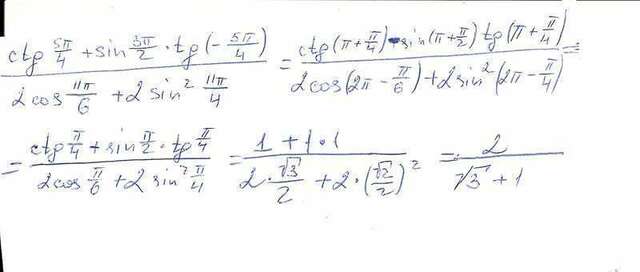 (ctg 5π/4 + sin 3π/2 · tg(-5π/4)) / (2cos 11π/6 + 2 sin² 11π/4) = (ctg(π+π/4) - sin(π+π/2) tg(π+π/4)) / (2cos(2π - π/6) + 2sin²(2π - π/4)) =
= (ctg π/4 + sin π/2 · tg π/4) / (2cos π/6 + 2 sin² π/4) = (1 + 1·1) / (2·√3/2 + 2·(√2/2)²) = 2 / (√3 + 1)